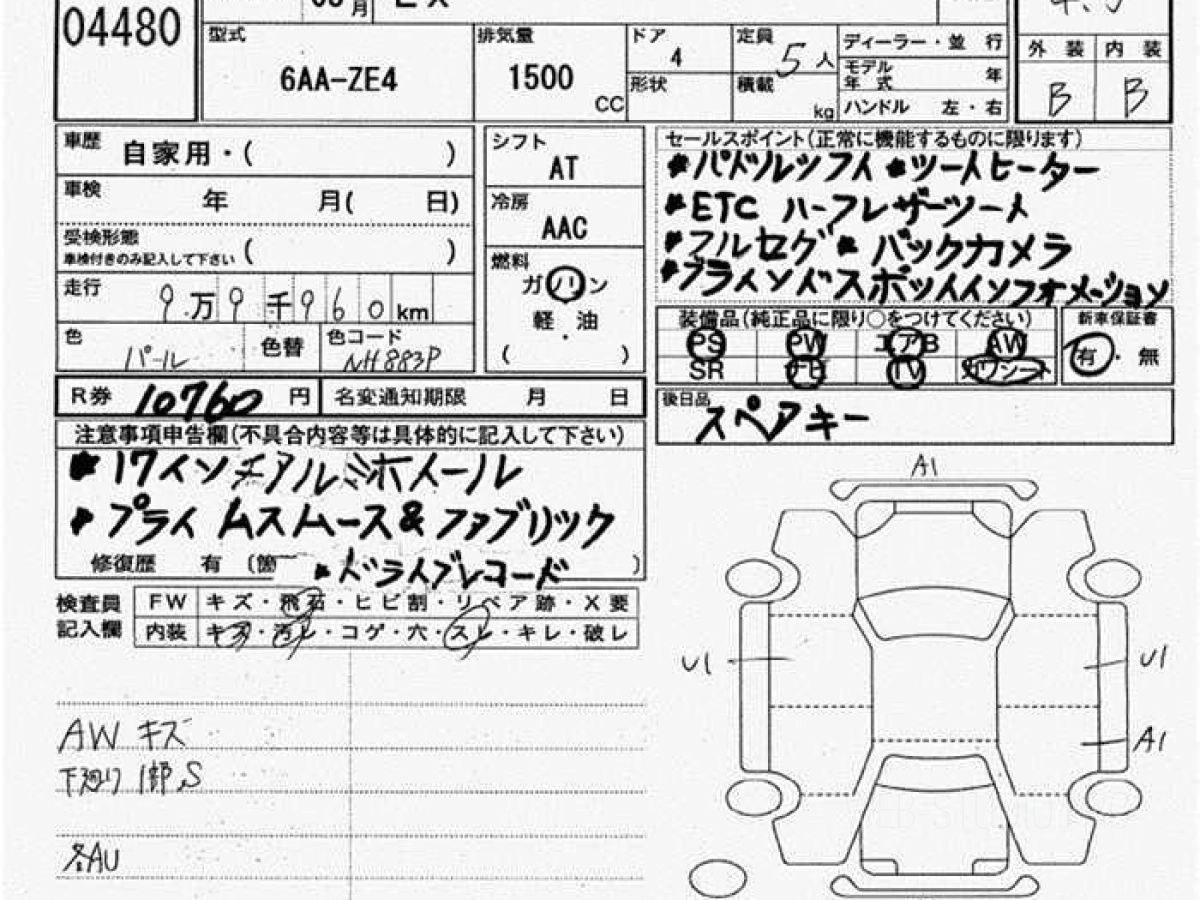 04480
月
EX
型式
6AA-ZE4
排気量
1500
CC
ドア
4
形状
定員
5人
積載
kg
ディーラー・並 行
モデル年式 年
ハンドル 左・右
外 装 内 装
B B
車歴
自家用・( )
車検
年 月( 日)
受検形態
車検付きのみ記入して下さい ( )
走行
9万9千960km
色
パール
色替
色コード
NH883P
シフト
AT
冷房
AAC
燃料
ガソリン
軽・油
( )
セールスポイント(正常に機能するものに限ります)
*パドルシフト *シートヒーター
*ETC ハーフレザーシート
*フルセグ * バックカメラ
*ブラインドスポットインフォメーション
装備品(純正品に限り○をつけてください)
PS PW エアB AW
SR ナビ TV カワシート
新車保証書
有・無
R券 10760 円 名変通知期限 月 日
後日品
スペアキー
注意事項申告欄(不具合内容等は具体的に記入して下さい)
*17インチアルミホイール
*プライムスムース&ファブリック
修復歴 有 (箇 )
*ドライブレコード
検査員記入欄
FW キズ・飛石・ヒビ割・リペア跡・X要
内装 キズ・汚レ・コゲ・穴・スレ・キレ・破レ
AW キズ
下廻り 1部S
各AU
A1
U1
U1
A1